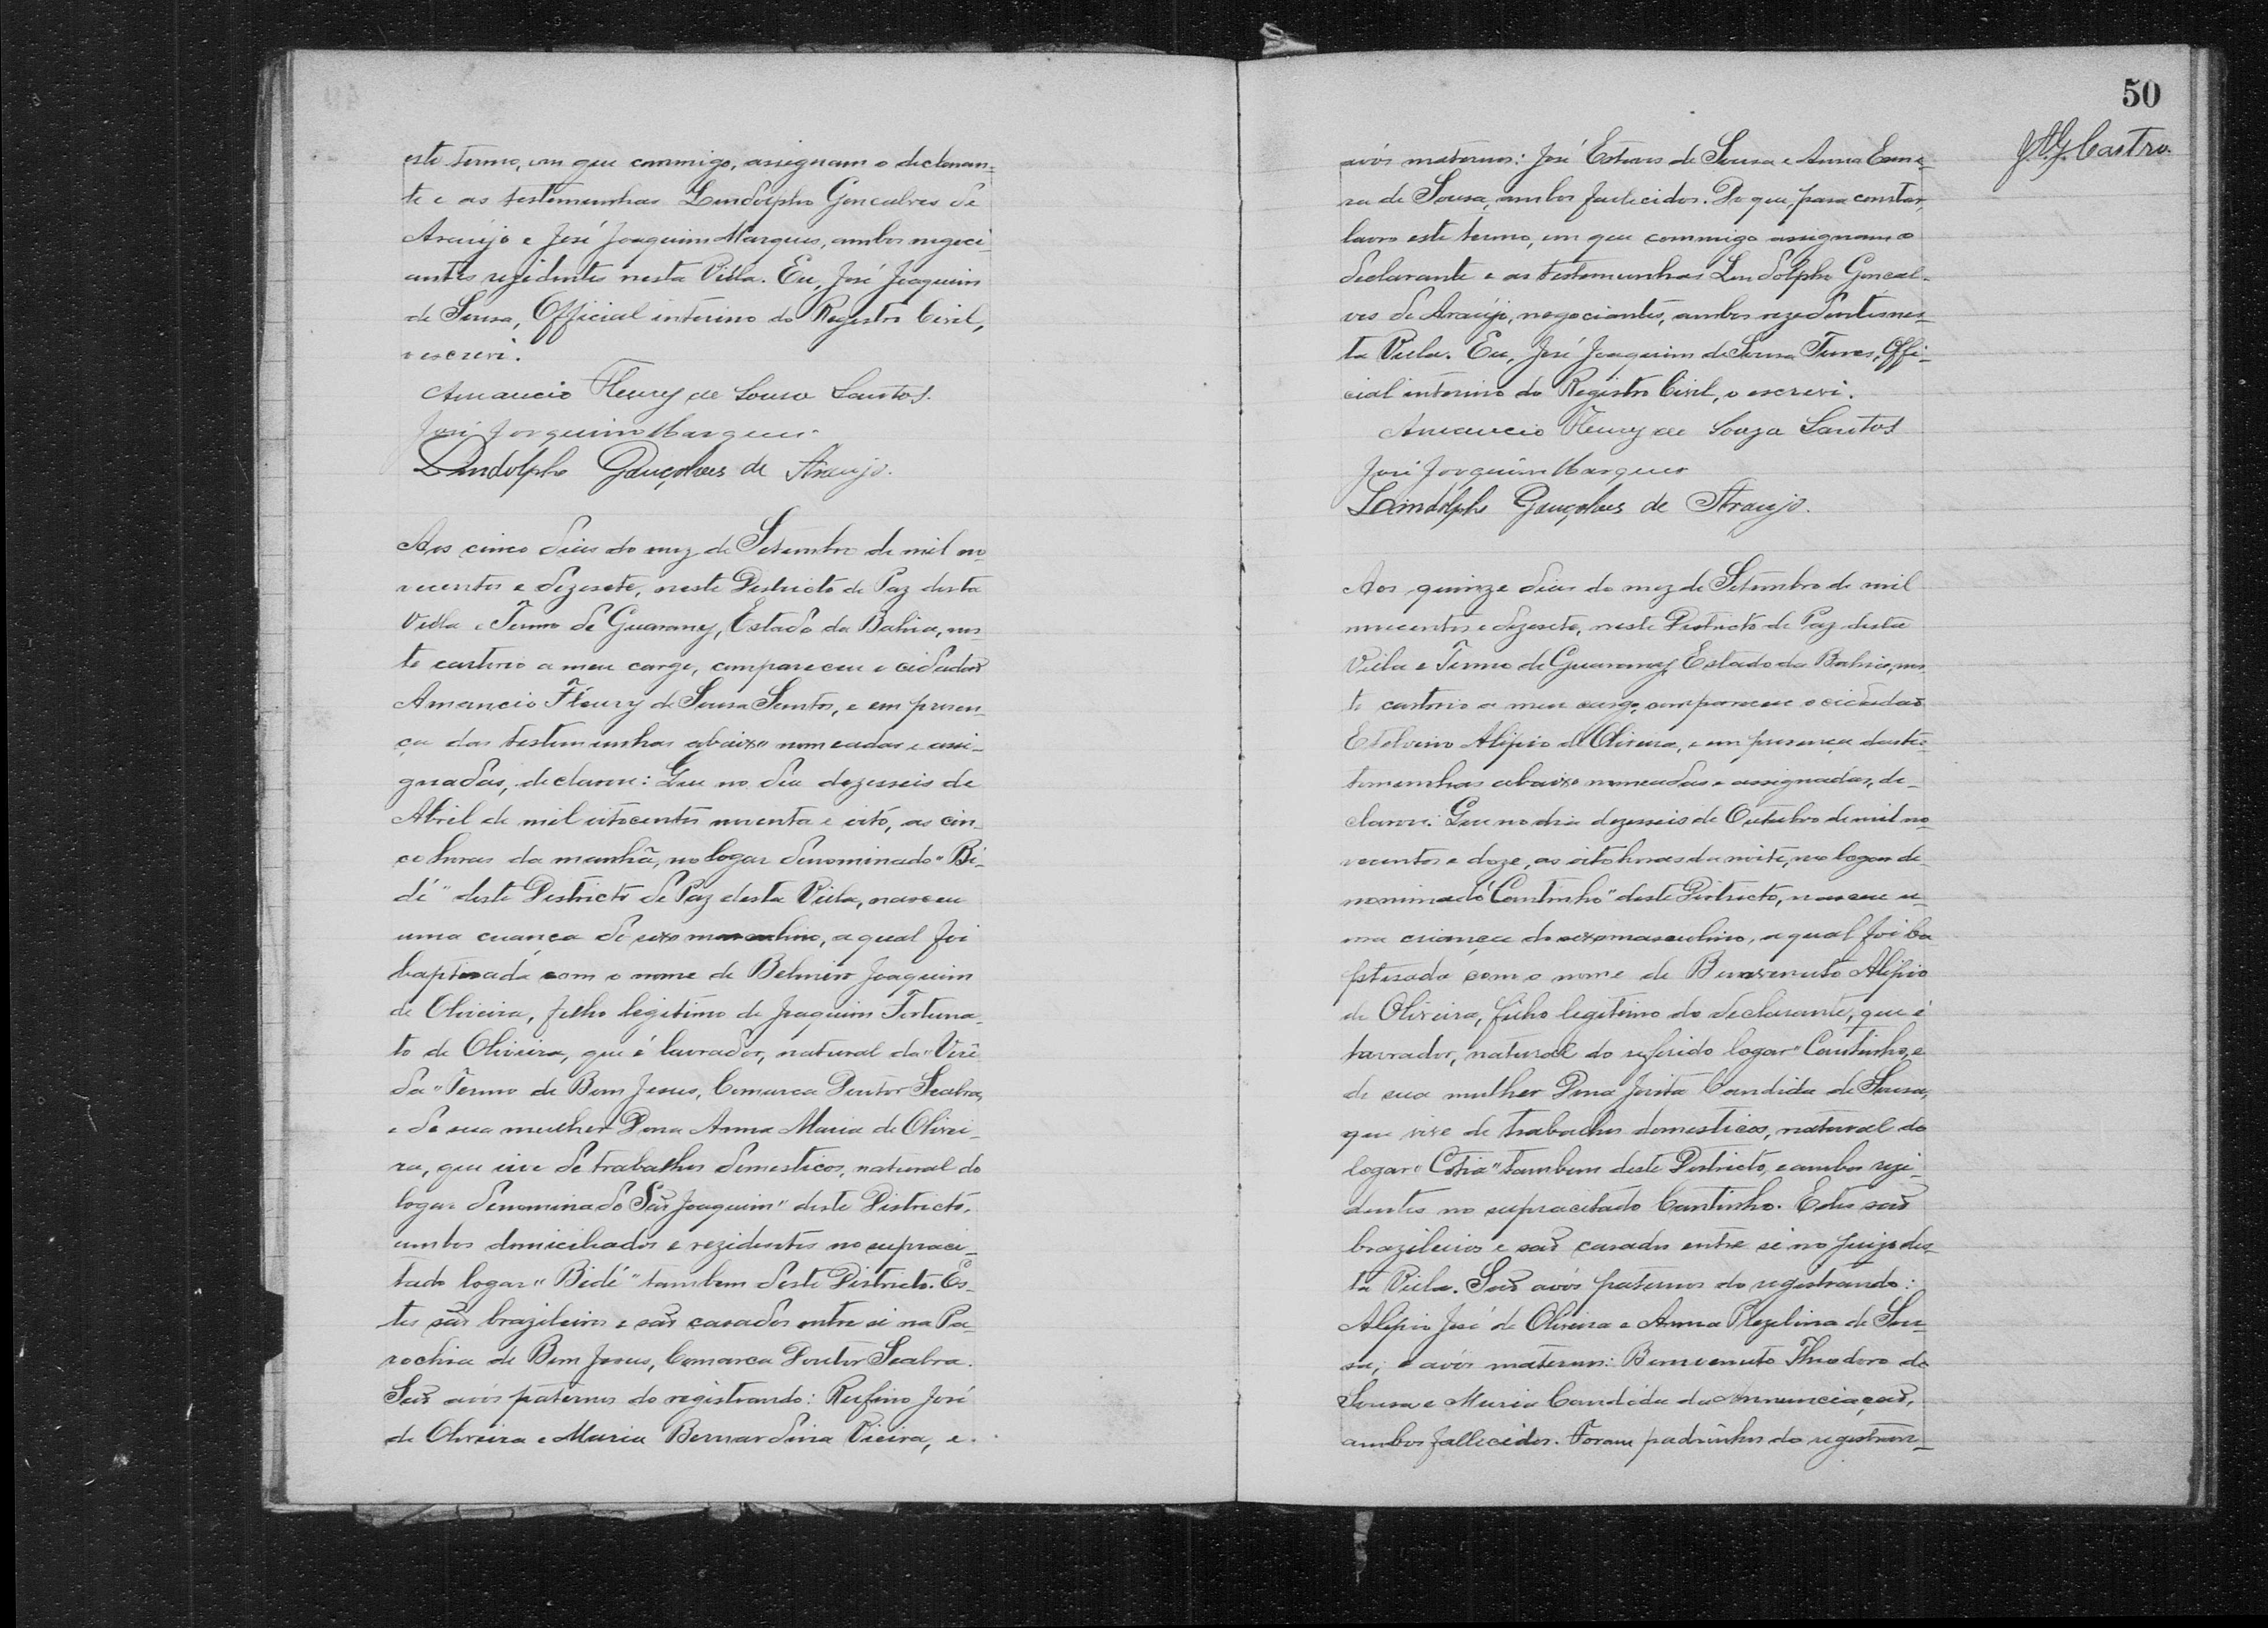 este termo, em que commigo, assignam o declaran-
te e as testemunhas Lindolpho Goncalves de
Araujo e José Joaquim Marques, ambos negoci-
antes rezidentes nesta Villa. Eu, José Joaquim
de Sousa, Official interino do Registro Civil,
o escrevi.
Amancio Fleury de Souza Santos.
José Joaquim Marques
Lindolpho Gonçalves de Araujo.
Aos cinco dias do mez de Setembro de mil no-
vecentos e dezesete, neste Districto de Paz desta
Villa e Termo de Guarany, Estado da Bahia, nes-
te cartorio a meu cargo, compareceu o cidadão
Amancio Fleury de Sousa Santos, e em presen-
ça das testemunhas abaixo nomeadas e assi-
gnadas, declarou: Que no dia dezesseis de
Abril de mil oitocentos noventa e oito, as cin-
co horas da manhã, no logar denominado "Bi-
dé" deste Districto de Paz desta Villa, nasceu
uma creança do sexo masculino, a qual foi
baptisada com o nome de Belmiro Joaquim
de Oliveira, filho legitimo de Joaquim Fortuna-
to de Oliveira, que é lavrador, natural da "Verê-
da" Termo de Bom Jesus, Comarca Doutor Seabra,
e de sua mulher Dona Anna Maria de Olivei-
ra, que vive de trabalhos domesticos, natural do
logar denominado "São Joaquim" deste Districto,
ambos domiciliados e rezidentes no supraci-
tado logar "Bidé" tambem deste Districto. Es-
tes são brazileiros e são casados entre si na Pa-
rochia de Bom Jesus, Comarca Doutor Seabra.
São avós paternos do registrando: Rufino José
de Oliveira e Maria Bernardina Vieira, e
50
avós maternos: José Esteves de Sousa e Anna
de Sousa, ambos fallecidos. Do que, para constar,
lavro este termo, em que commigo assignam o
declarante e as testemunhas Lindolpho Goncal-
ves de Araujo, negociantes, ambos rezedentes nes-
ta Villa. Eu, José Joaquim de Sousa Offi-
cial interino do Registro Civil, o escrevi.
Amancio Fleury de Souza Santos
José Joaquim Marques
Lindolpho Gonçalves de Araujo.
Castro.
Aos quinze dias do mez de Setembro de mil
novecentos e dezesete, neste Districto de Paz desta
Villa e Termo de Guarany, Estado da Bahia, nes-
te cartorio a meu cargo, compareceu o cidadão
Etelvino Alipio de Oliveira, e em presença das tes-
temunhas abaixo nomeadas e assignadas, de-
clarou: Que no dia dezesseis de Outubro de mil no-
vecentos e doze, as oito horas da noite, no logar de-
nominado "Cantinho" deste Districto, nasceu u-
ma criança do sexo masculino, a qual foi ba-
ptisada com o nome de Benvenuto Alipio
de Oliveira, filho legitimo do declarante, que é
lavrador, natural do referido logar "Cantinho, e
de sua mulher Dona Candida de Sousa,
que vive de trabalhos domesticos, natural do
logar "Cotia" tambem deste Districto, e ambos rezi-
dentes no supracitado Cantinho. Estes são
brazileiros e são casados entre si no Juizo des-
ta Villa. São avós paternos do registrando:
Alipio José de Oliveira e Anna de Sou-
sa; e avós maternos: Benvenuto Theodoro de
Sousa e Maria Candida da Annunciação,
ambos fallecidos. Foram padrinhos do registran-